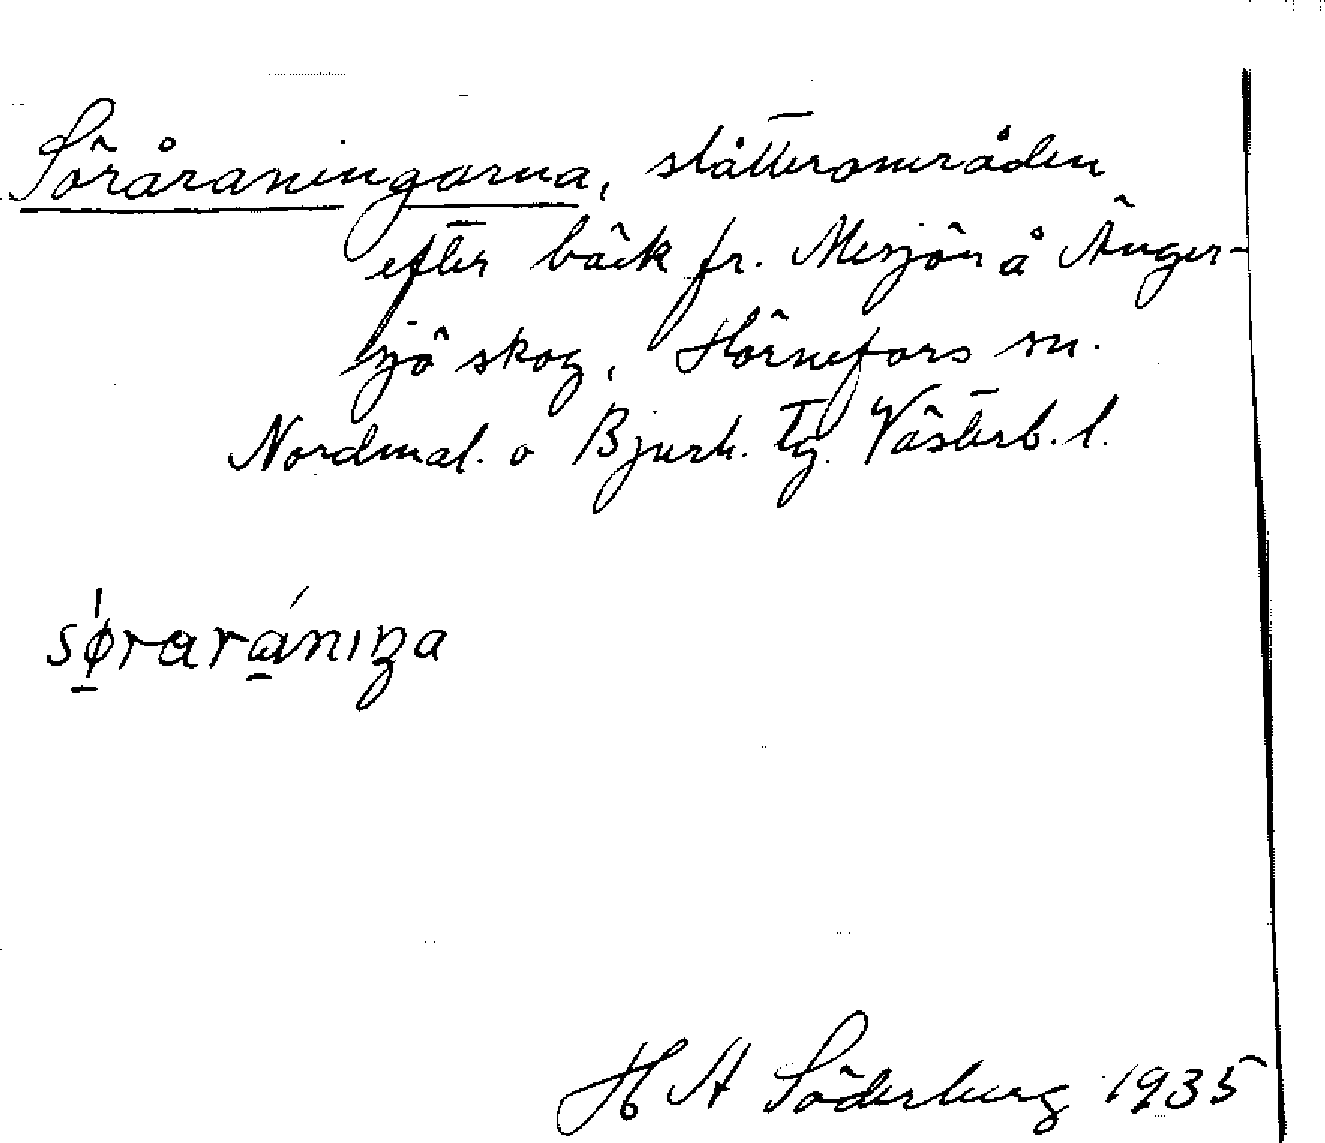 Söråraningarna, slåtterområden
efter bäck fr. Mesjön å Änger-
sjö skog, Hörnefors sn.
Nordmal. o Bjurh. tg. Västerb. l.
søraránıŋa
H A Söderberg 1935